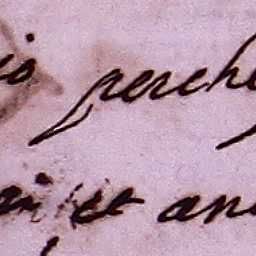 io perche
ni, et an